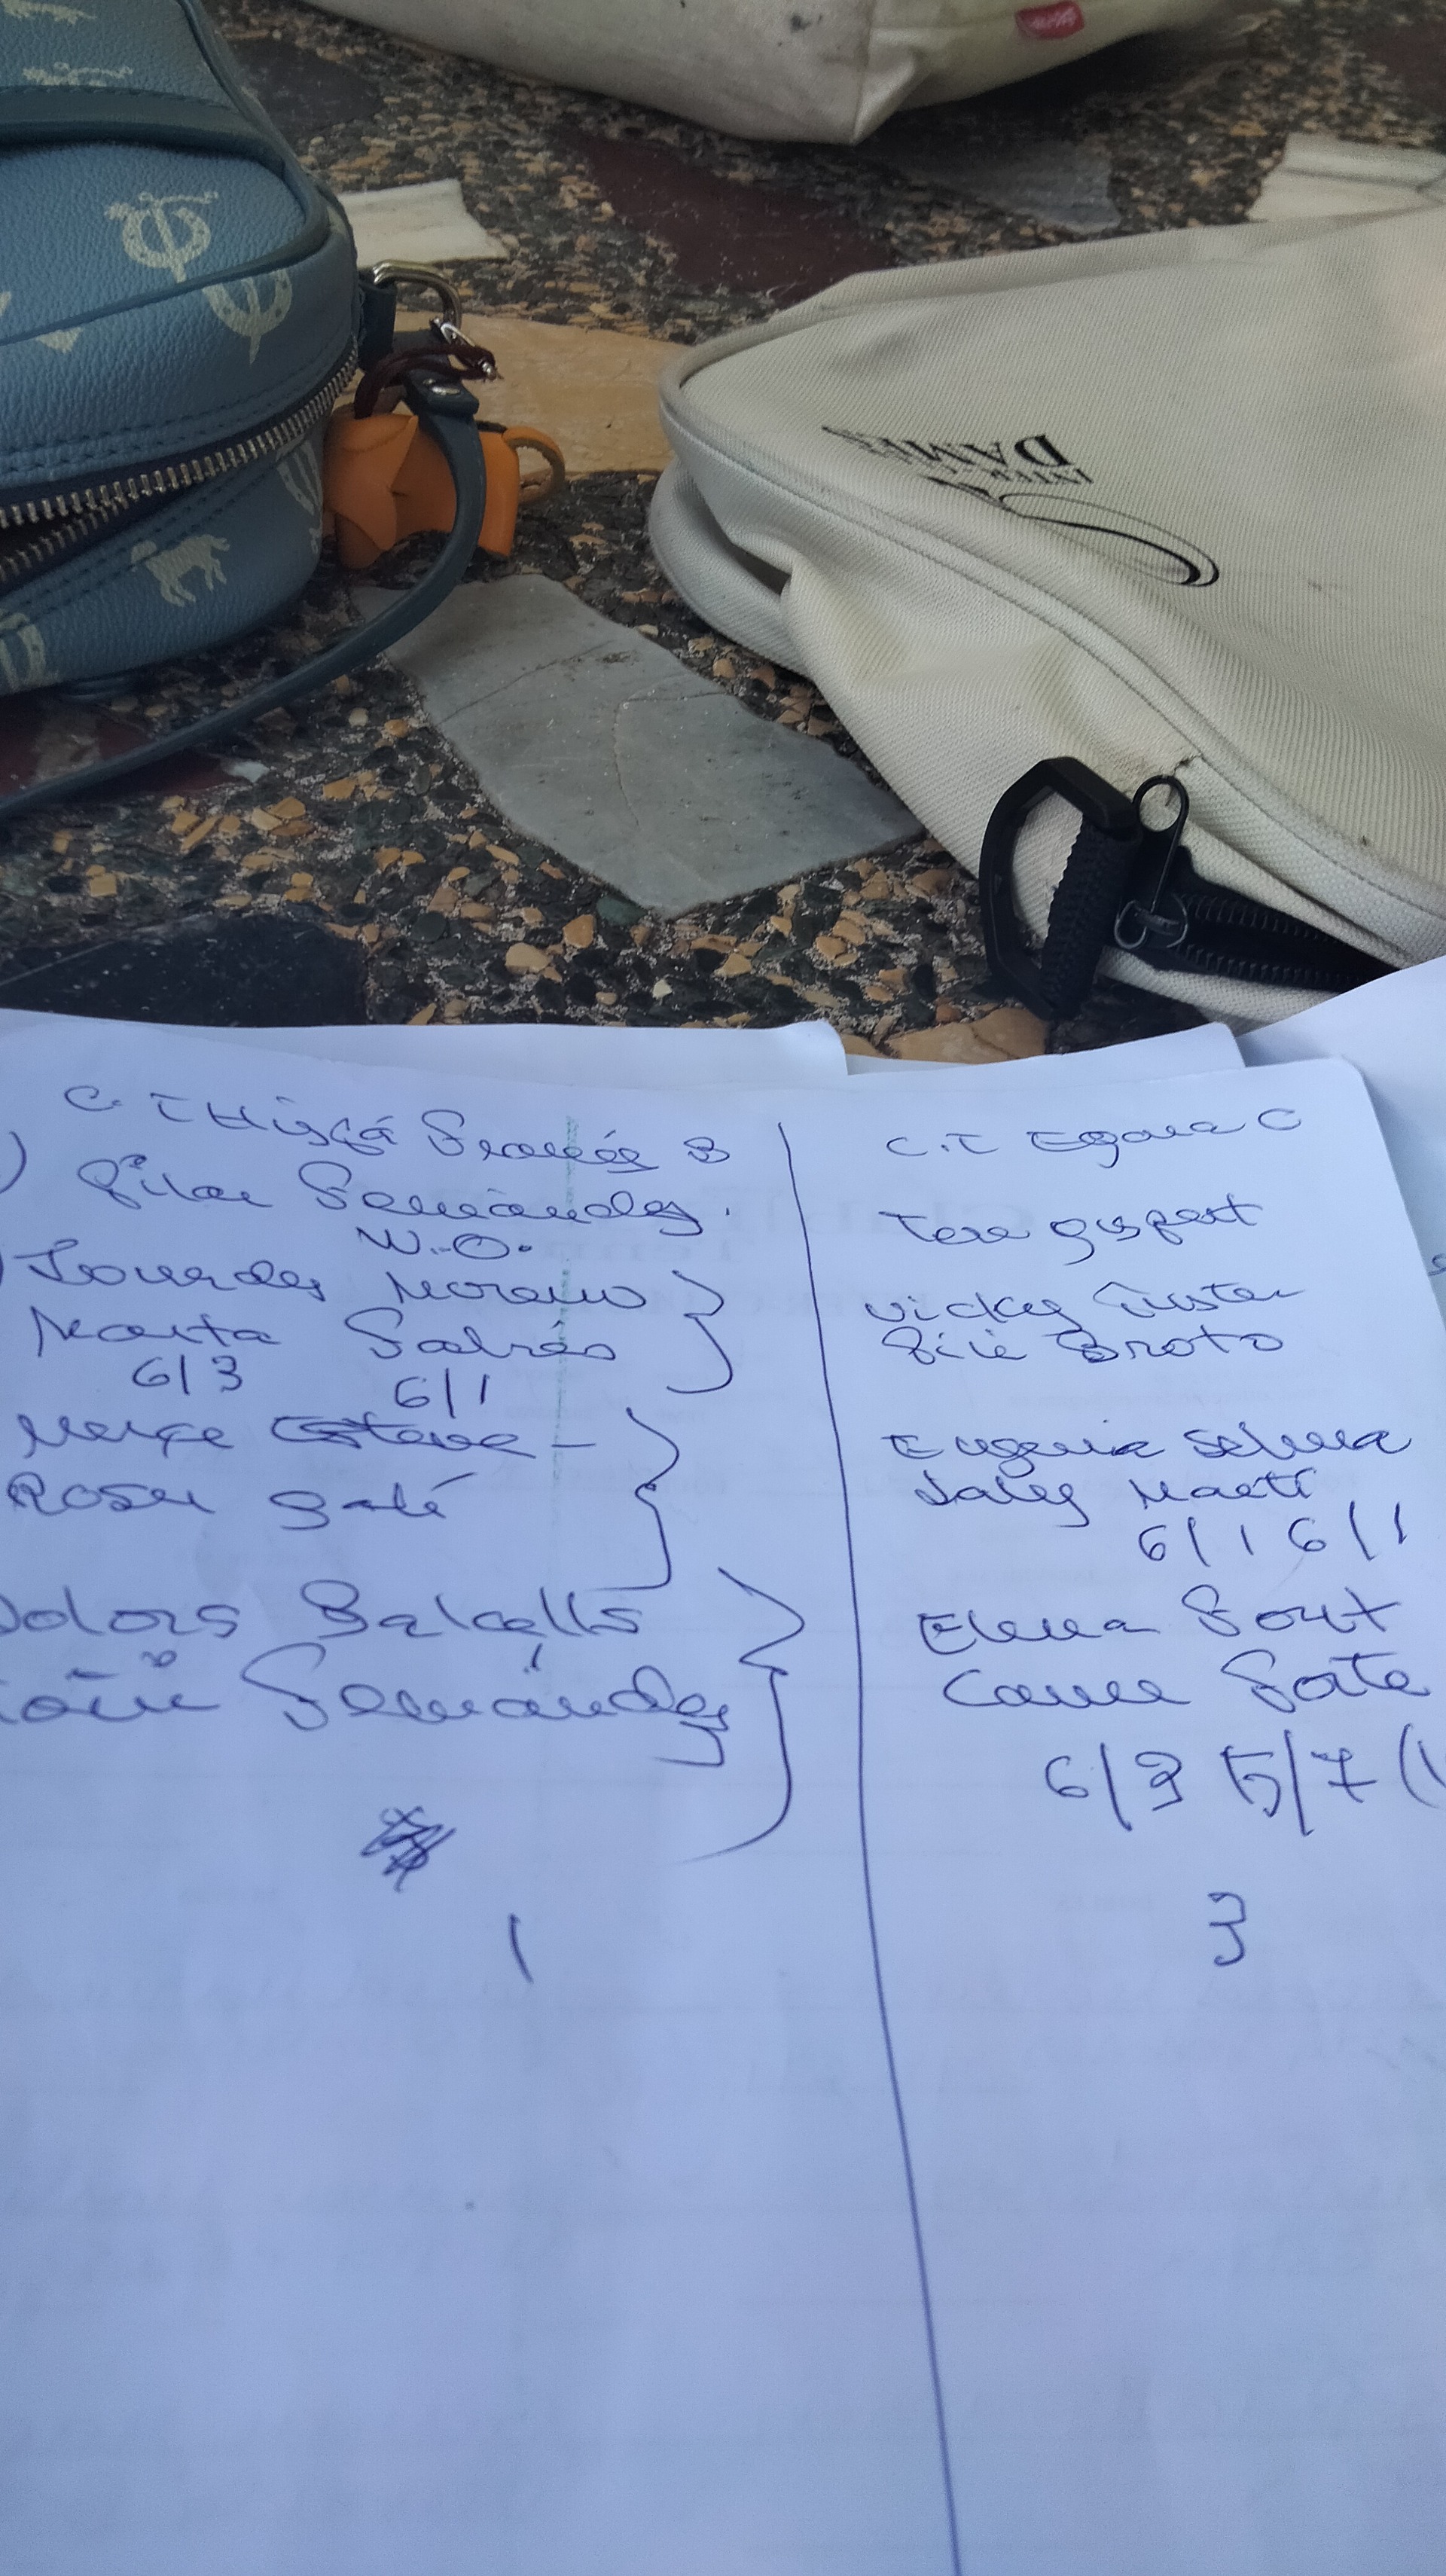 DAMES
C.T Hispà Francés B
Pilar Fernández.
W.O.
Lourdes Moreno
Marta Fabrés
6/3 6/1
Merçe Esteve -
Roser Galé
Dolors Balcells
Fernández
1
C.T Egara C
Tere Gispert
Vicky Fuster
Pili Broto
Eugenia Selma
Martí
6/1 6/1
Elena Font
Carme Porta
6/3 5/7 (1
3